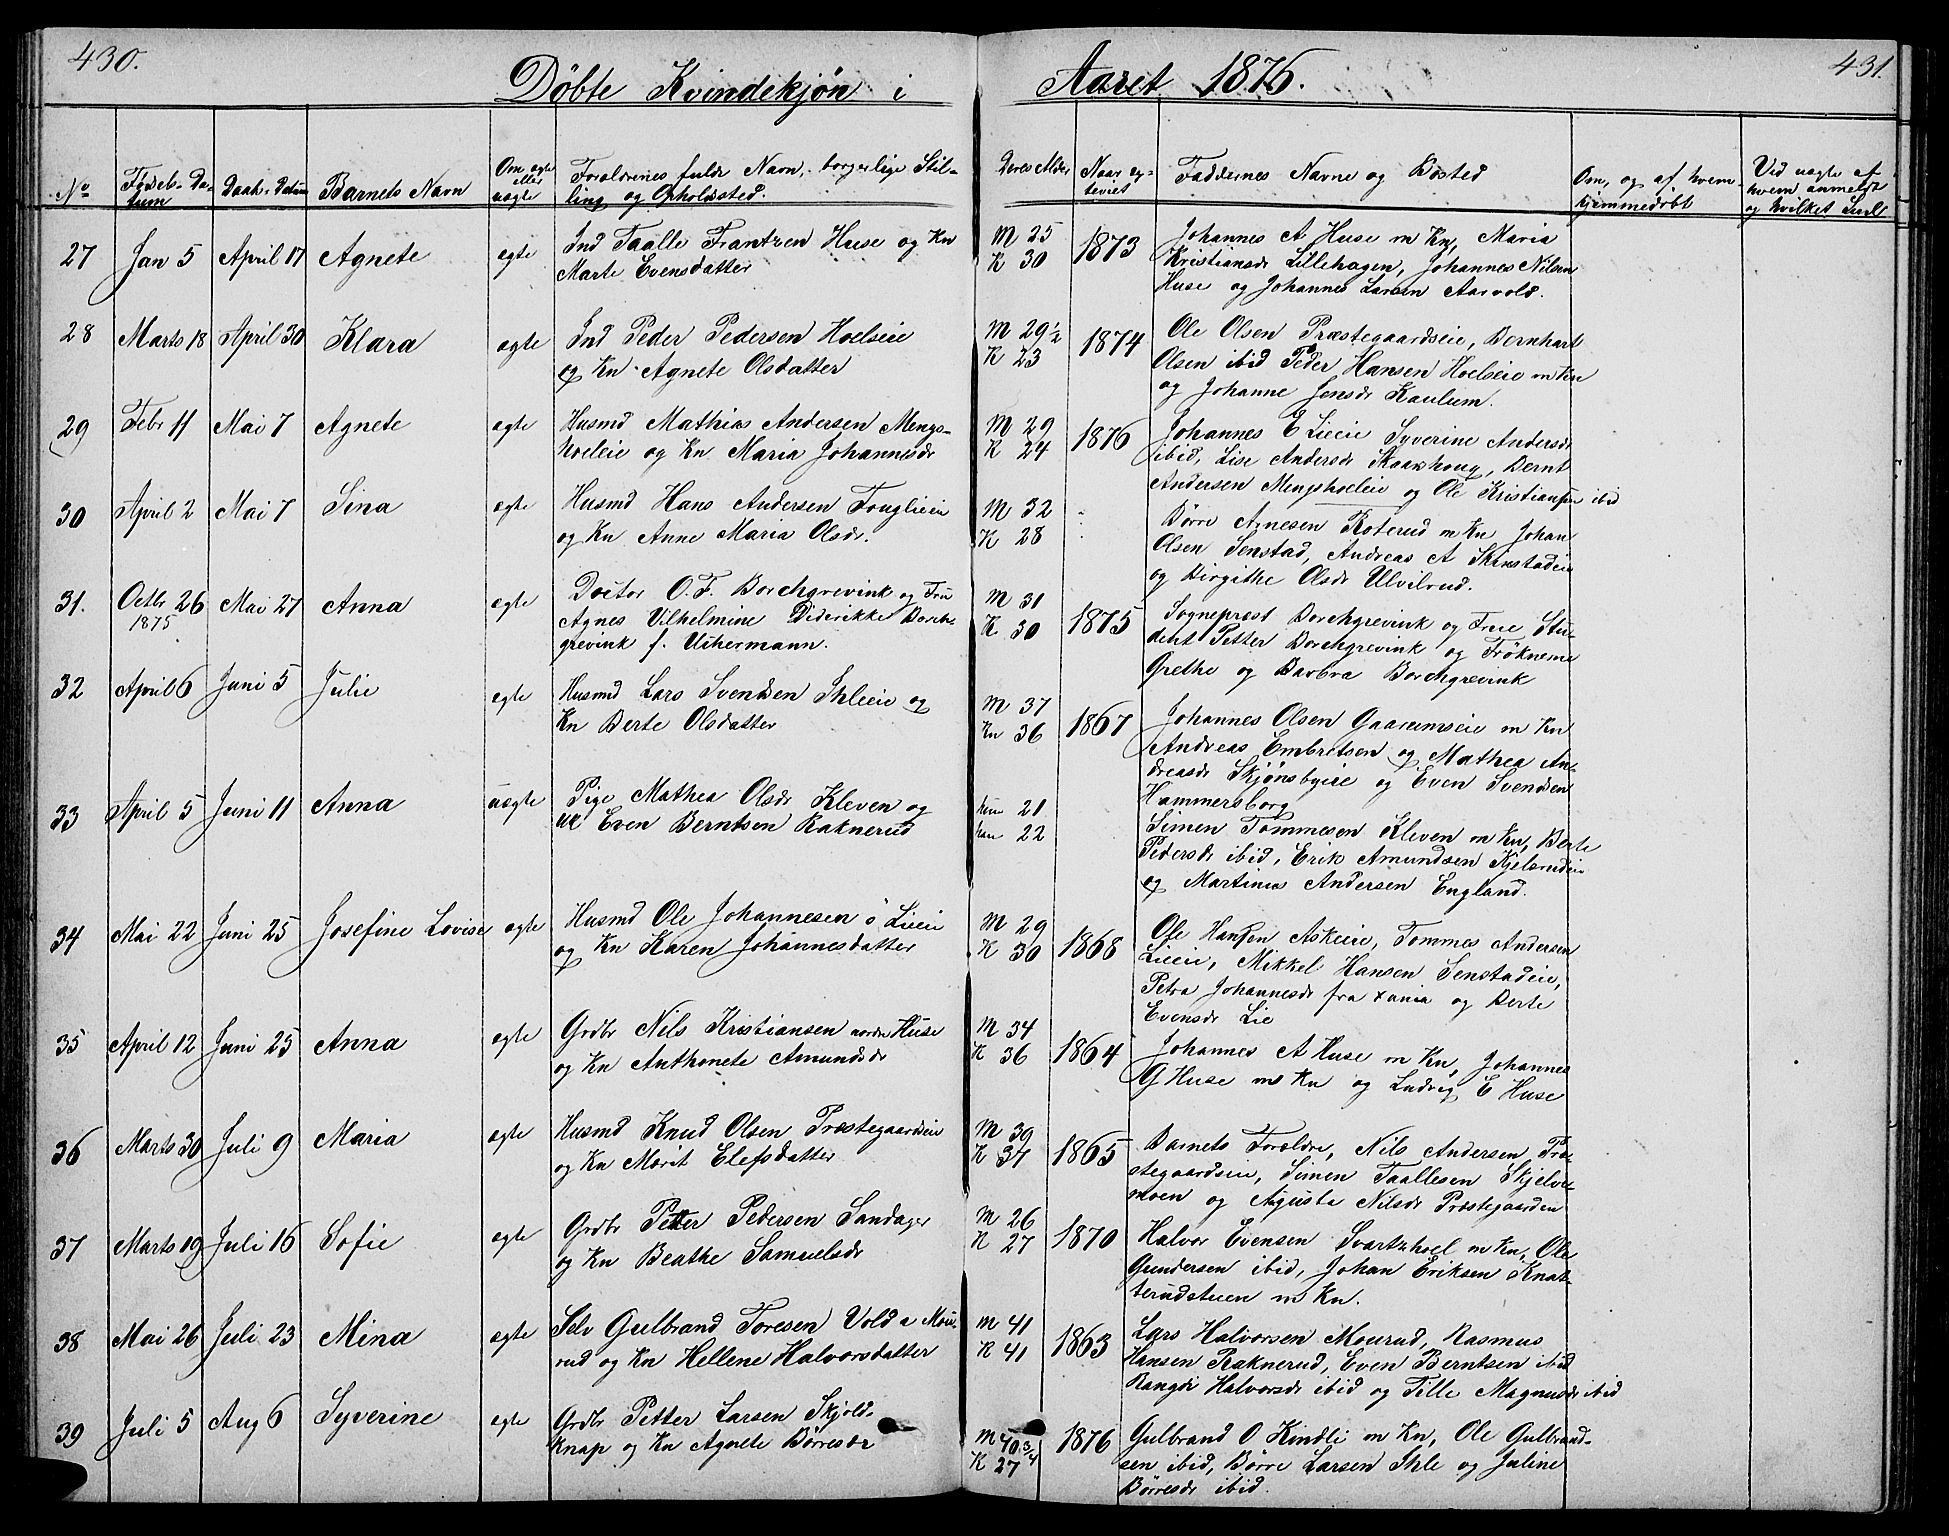 430.
Döbte Kvindekjön i
Aaret 1876.
431.
No
Födsels-Datum
Daabs Datum
Barnets Navn
Om ægte eller uægte
Forældrenes fulde Navn, borgerlige Stilling og Opholdssted.
Deres Alder
Naar egteviet
Faddernes Navne og Bosted
Om, og af hvem hjemmedøbt
Vid uægte af hvem anmeldt og hvilket
27 Jan 5 April 17 Agnete egte
Ind Taalle Frantzen Huse og Kn
Marte Evensdatter
M 25
K 30
1873
Johannes A Huse m Kn, Maria
Kristiansdr Lillehagen, Johannes Nilsen
Huse og Johannes Larsen Aarvold.
28 Marts 18 April 30 Klara egte
Ind Peder Pedersen Hoelseie
og Kn Agnete Olsdatter
M 29 1/2
K 23
1874
Ole Olsen Præstegaardseie, Bernhart
Olsen ibid Peder Hansen Hoelseie m Kn
og Johanne Jensdr Kaulum.
29 Febr 11 Mai 7 Agnete egte
Husmd Mathias Andersen Mengs-
hoeleie og Kn Maria Johannesdr
M 29
K 24
1876
Johannes E Lieeie Syverine Andersdr
ibid, Lise Andersdr Skaarhoug, Bernt
Andersen Mengshoeleie og Ole Kristiansen ibid
30 April 2 Mai 7 Sina egte
Husmd Hans Andersen
og Kn Anne Maria Olsdr.
M 32
K 28
Börre Agnesen Roterud m Kn Johan
Olsen Senstad, Andreas A
og Birgithe Olsdr Ulvilrud.
31. Octbr 26 Mai 27 Anna egte
1875
Doctor O. F. Borchgrevink og Fru
Agnes Vilhelmine Diderikke Borch-
grevink f. Uchermann.
M 31
K 30
1875
Sogneprest Borchgrevink og Frue Stu-
dent Petter Borchgrevink og Fröknerne
Grethe og Barbra Borchgrevink
32 April 6 Juni 5 Julie egte
Husmd Lars Svendsen Ihleeie og
Kn Berte Olsdatter
M 37
Kn 36
1867
Johannes Olsen Gaarumseie m Kn
Andreas Embretsen og Mathea An-
dreasdr Skjönsbyeie og Even Svendsen
Hammersborg
33 April 5 Juni 11 Anna uægte
Pige Mathea Olsdr Kleven og
UK Even Berntsen Raknerud
hun 21
han 22
Simen Tommesen Kleven m Kn, Berte
Pedersdr ibid, Erik Amundsen Kjelsrudeie
og Martinus Andersen England.
34 Mai 22 Juni 25 Josefine Lovise egte
Husmd Ole Johannesen ö Lieeie
og Kn Karen Johannesdatter
M 29
K 30
1868
Ole Hansen Askeeie, Tommes Andersen
Lieeie, Mikkel Hansen Senstadeie,
Petra Johannesdr fra Xania og Berte
Evensdr Lie
35 April 12 Juni 25 Anna egte
Grdbr Nils Kristiansen nordre Huse
og Kn Anthonete Amundsdr
M 34
K 36
1864
Johannes A Huse m Kn, Johannes
G Huse m Kn og Ludvig E Huse
36 Marts 30 Juli 9 Maria egte
Husmd Knud Olsen Præstegaardseie
og Kn Marit Elefsdatter
M 39
K 37
1865
Barnets Forældre, Nils Andersen Præ-
stegaardseie, Simen Taallesen Skjelve-
moen og Agusta Nilsdr Præstegaarden
37 Marts 19 Juli 16 Sofie egte
Grdbr Petter Pedersen Sandager
og Kn Beathe Samuelsdr
M 26
K 27
1870
Halvor Evensen Svartshoel m Kn, Ole
Gundersen ibid, Johan Eriksen Knat-
terudstuen m Kn.
38 Mai 26 Juli 23 Mina egte
Selv Gulbrand Toresen Vold a Mou-
rud og Kn Hellene Halvorsdatter
M 41
K 41
1863
Lars Halvorsen Mourud, Rasmus
Hansen Raknerud, Even Berntsen ibid
Rangdi Halvorsdr ibid og Tille Magnusdr ibid
39 Juli 5 Aug 6 Syverine egte
Grdbr Petter Larsen Skjold-
knap og Kn Agnete Börresdr
M 40 3/4
K 27
1876
Gulbrand O Kindli m Kn, Ole Gulbrand-
sen ibid, Börre Larsen Ihle og Juline
Börresdr ibid.